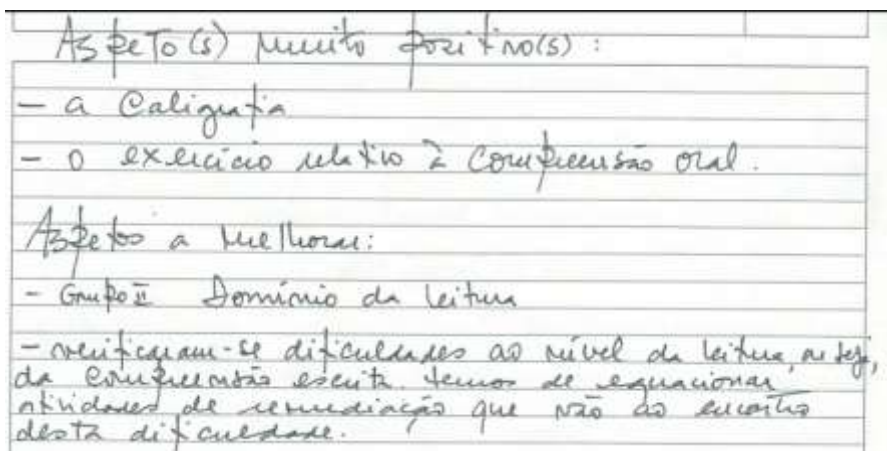 Aspeto(s) muito positivo(s):
- a Caligrafia
- o exercício relativo à Compreensão oral.
Aspetos a melhorar:
- Grupo II Domínio da leitura
- verificaram-se dificuldades ao nível da leitura, ou seja,
da compreensão escrita. temos de equacionar
atividades de remediação que vão ao encontro
desta dificuldade.